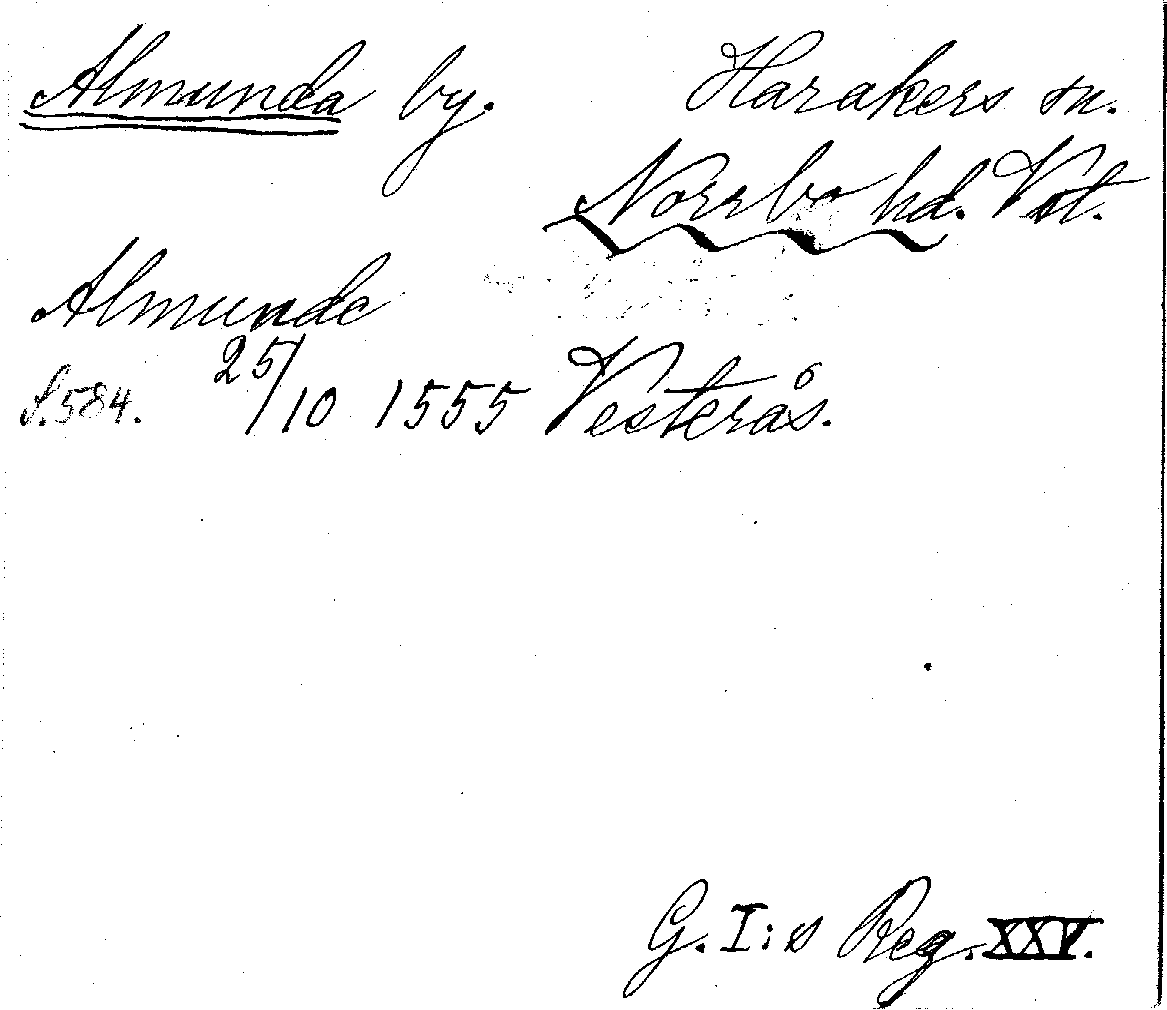 Almunda by. Harakers sn.
Norrbo hd. Vst.
Almunde
S. 584. 25/10 1555 Vesterås.
G. I:s Reg. XXV.